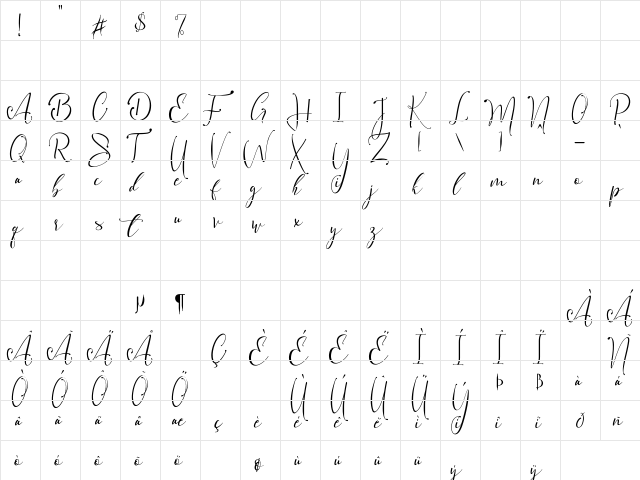 ! " # $ %
A B C D E F G H I J K L M N O P
Q R S T U V W X Y Z [ \ ] _
a b c d e f g h i j k l m n o p
q r s t u v w x y z
µ ¶
À Á
Â Ã Ä Å Ç È É Ê Ë Ì Í Î Ï Ñ
Ò Ó Ô Õ Ö Ù Ú Û Ü Ý Þ ß à á
â ã ä å æ ç è é ê ë ì í î ï ð ñ
ò ó ô õ ö ø ù ú û ü ý ÿ